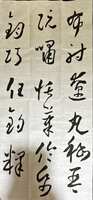 布射遼丸嵇琴
阮嘯恬筆倫紙
鈞巧任釣釋